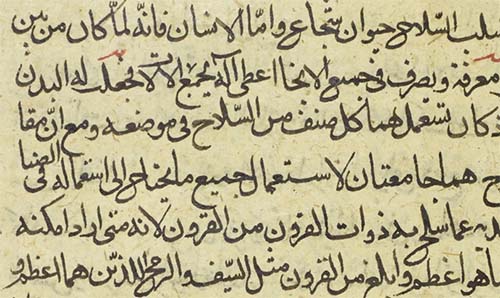 سلب السلاح حيوان شجاع واما الانسان فانه لما كان من بين
معرفة ويصرف في جميع الانحا اعطي آلة تجمع الآلات فجعلت له اليدن
كان تستعمل هما كل صنف من السلاح في موضعه ومع ان مقا
هما جامعتان لاستعمال جميع ما يحتاج الى استعماله في
عما سلح به ذوات القرون من القرون لانه متى اراد امكنه
اهو اعظم وابلغ من القرون مثل السيف والرمح اللذين هما اعظم و